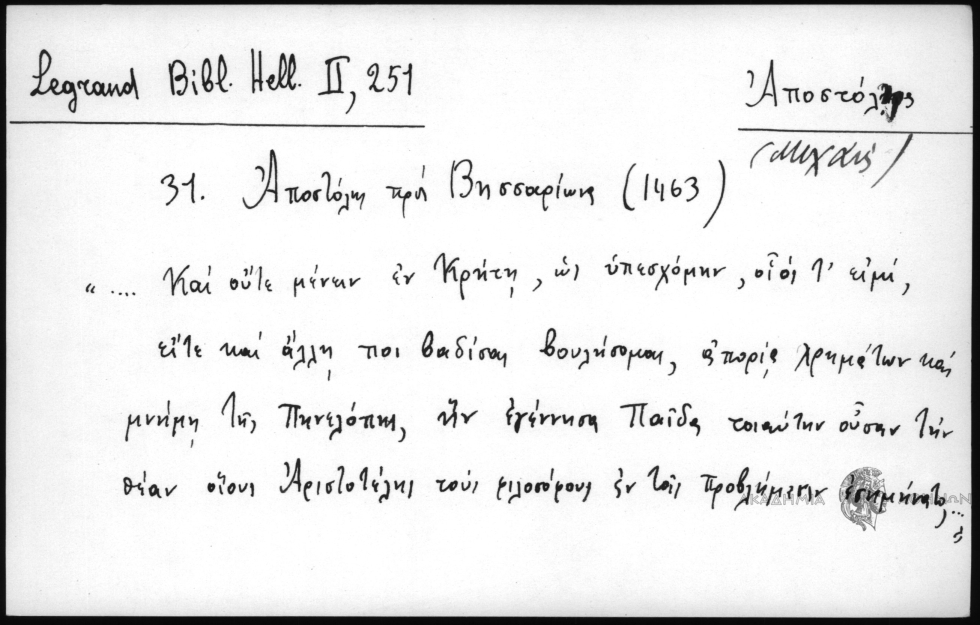 Legrand Bibl. Hell. II, 251
Ἀποστόλης
(Μιχαήλ)
31. Ἀποστόλης πρὸς Βησσαρίωνα (1463)
" .... Καὶ οὔτε μένειν ἐν Κρήτῃ, ὡς ὑπεσχόμην, οἷός τ' εἰμί,
εἴτε καὶ ἄλλῃ ποι βαδίσαι βουλήσομαι, ἀπορίᾳ χρημάτων καὶ
μνήμῃ τῆς Πηνελόπης, ἣν ἐγέννησα παῖδα τοιαύτην οὖσαν τὴν
θέαν οἵους Ἀριστοτέλης τοὺς φιλοσόφους ἐν τοῖς προβλήμασιν ἐσημήνατο, ...
ΑΚΑΔΗΜΙΑ ΑΘΗΝΩΝ